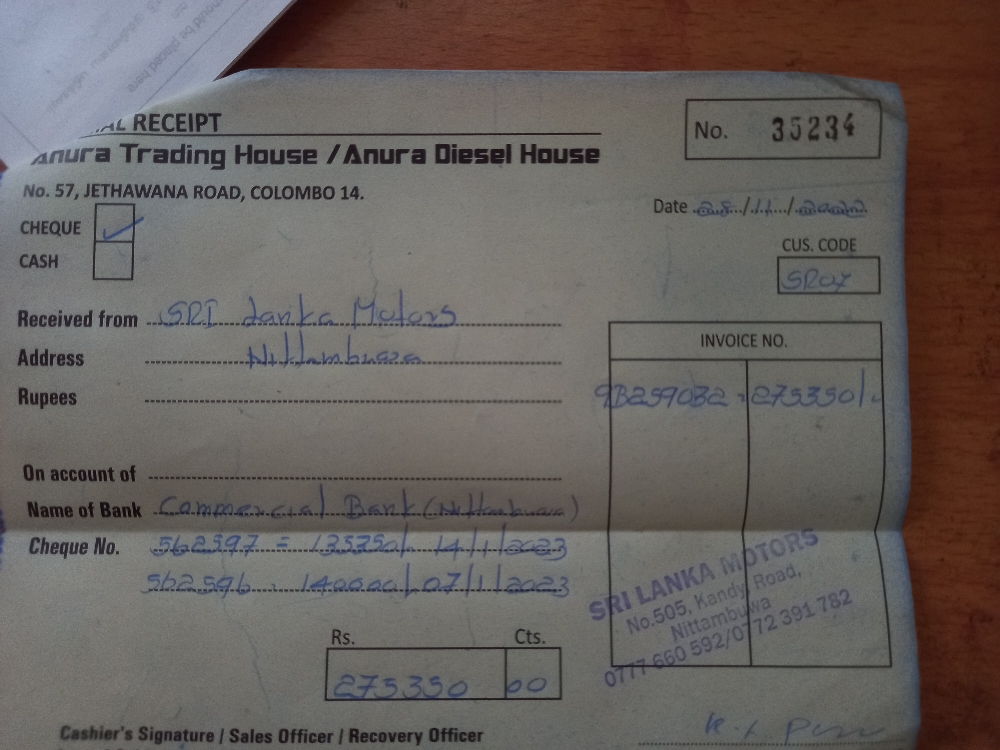 RECEIPT
No. 35234
Anura Trading House / Anura Diesel House
No. 57, JETHAWANA ROAD, COLOMBO 14.
Date 28/11/2022
CHEQUE ✓
CASH
CUS. CODE
SR07
Received from SRI Lanka Motors
Address Nittambuwa
Rupees
INVOICE NO.
9B259032 - 275350/-
On account of
Name of Bank Commercial Bank (Nittambuwa)
Cheque No. 562597 = 135350/. 14/1/2023
562596 - 140000/. 07/1/2023
SRI LANKA MOTORS
No.505, Kandy Road,
Nittambuwa
0777 660 592/0772 391 782
Rs. Cts.
275350 00
Cashier's Signature / Sales Officer / Recovery Officer